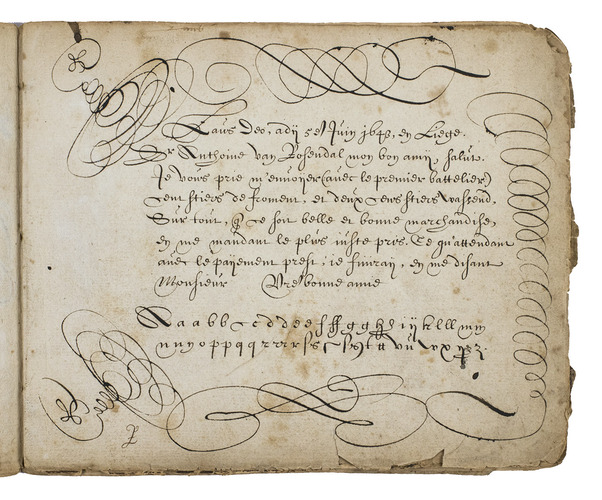 Laus Deo, adij 5e Juin 1648, en Liege.
Sr Anthoine van Rosendal mon bon amij, salut.
Je vous prie m'envoijer (avec le premier battelier)
cent stiers de froment, et deux cens stiers
Sur tout, q ce soit belle et bonne marchandise,
en me mandant le plus iuste pris. Ce qu'attendant
avec le paijement prest; ie finiraij, en me disant
Monsieur Vre bonne amie
A a a b b c c d d e e e f ff g g h i ij k l l l m m
n n y o p p q q r r r r s s t tt v u w x y z z.